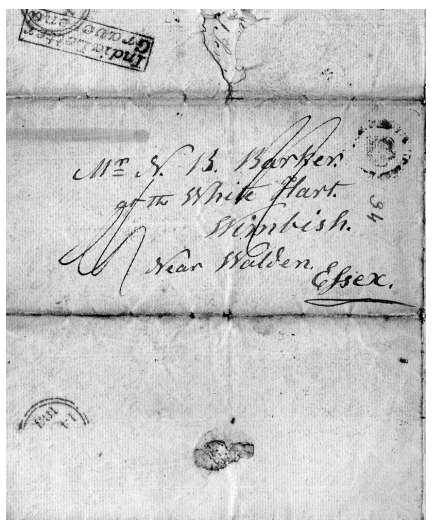 India Letter
Gravesend
Mr N. B. Barker.
at the White Hart.
Wimbish.
Near Walden.
Essex.
34
1831